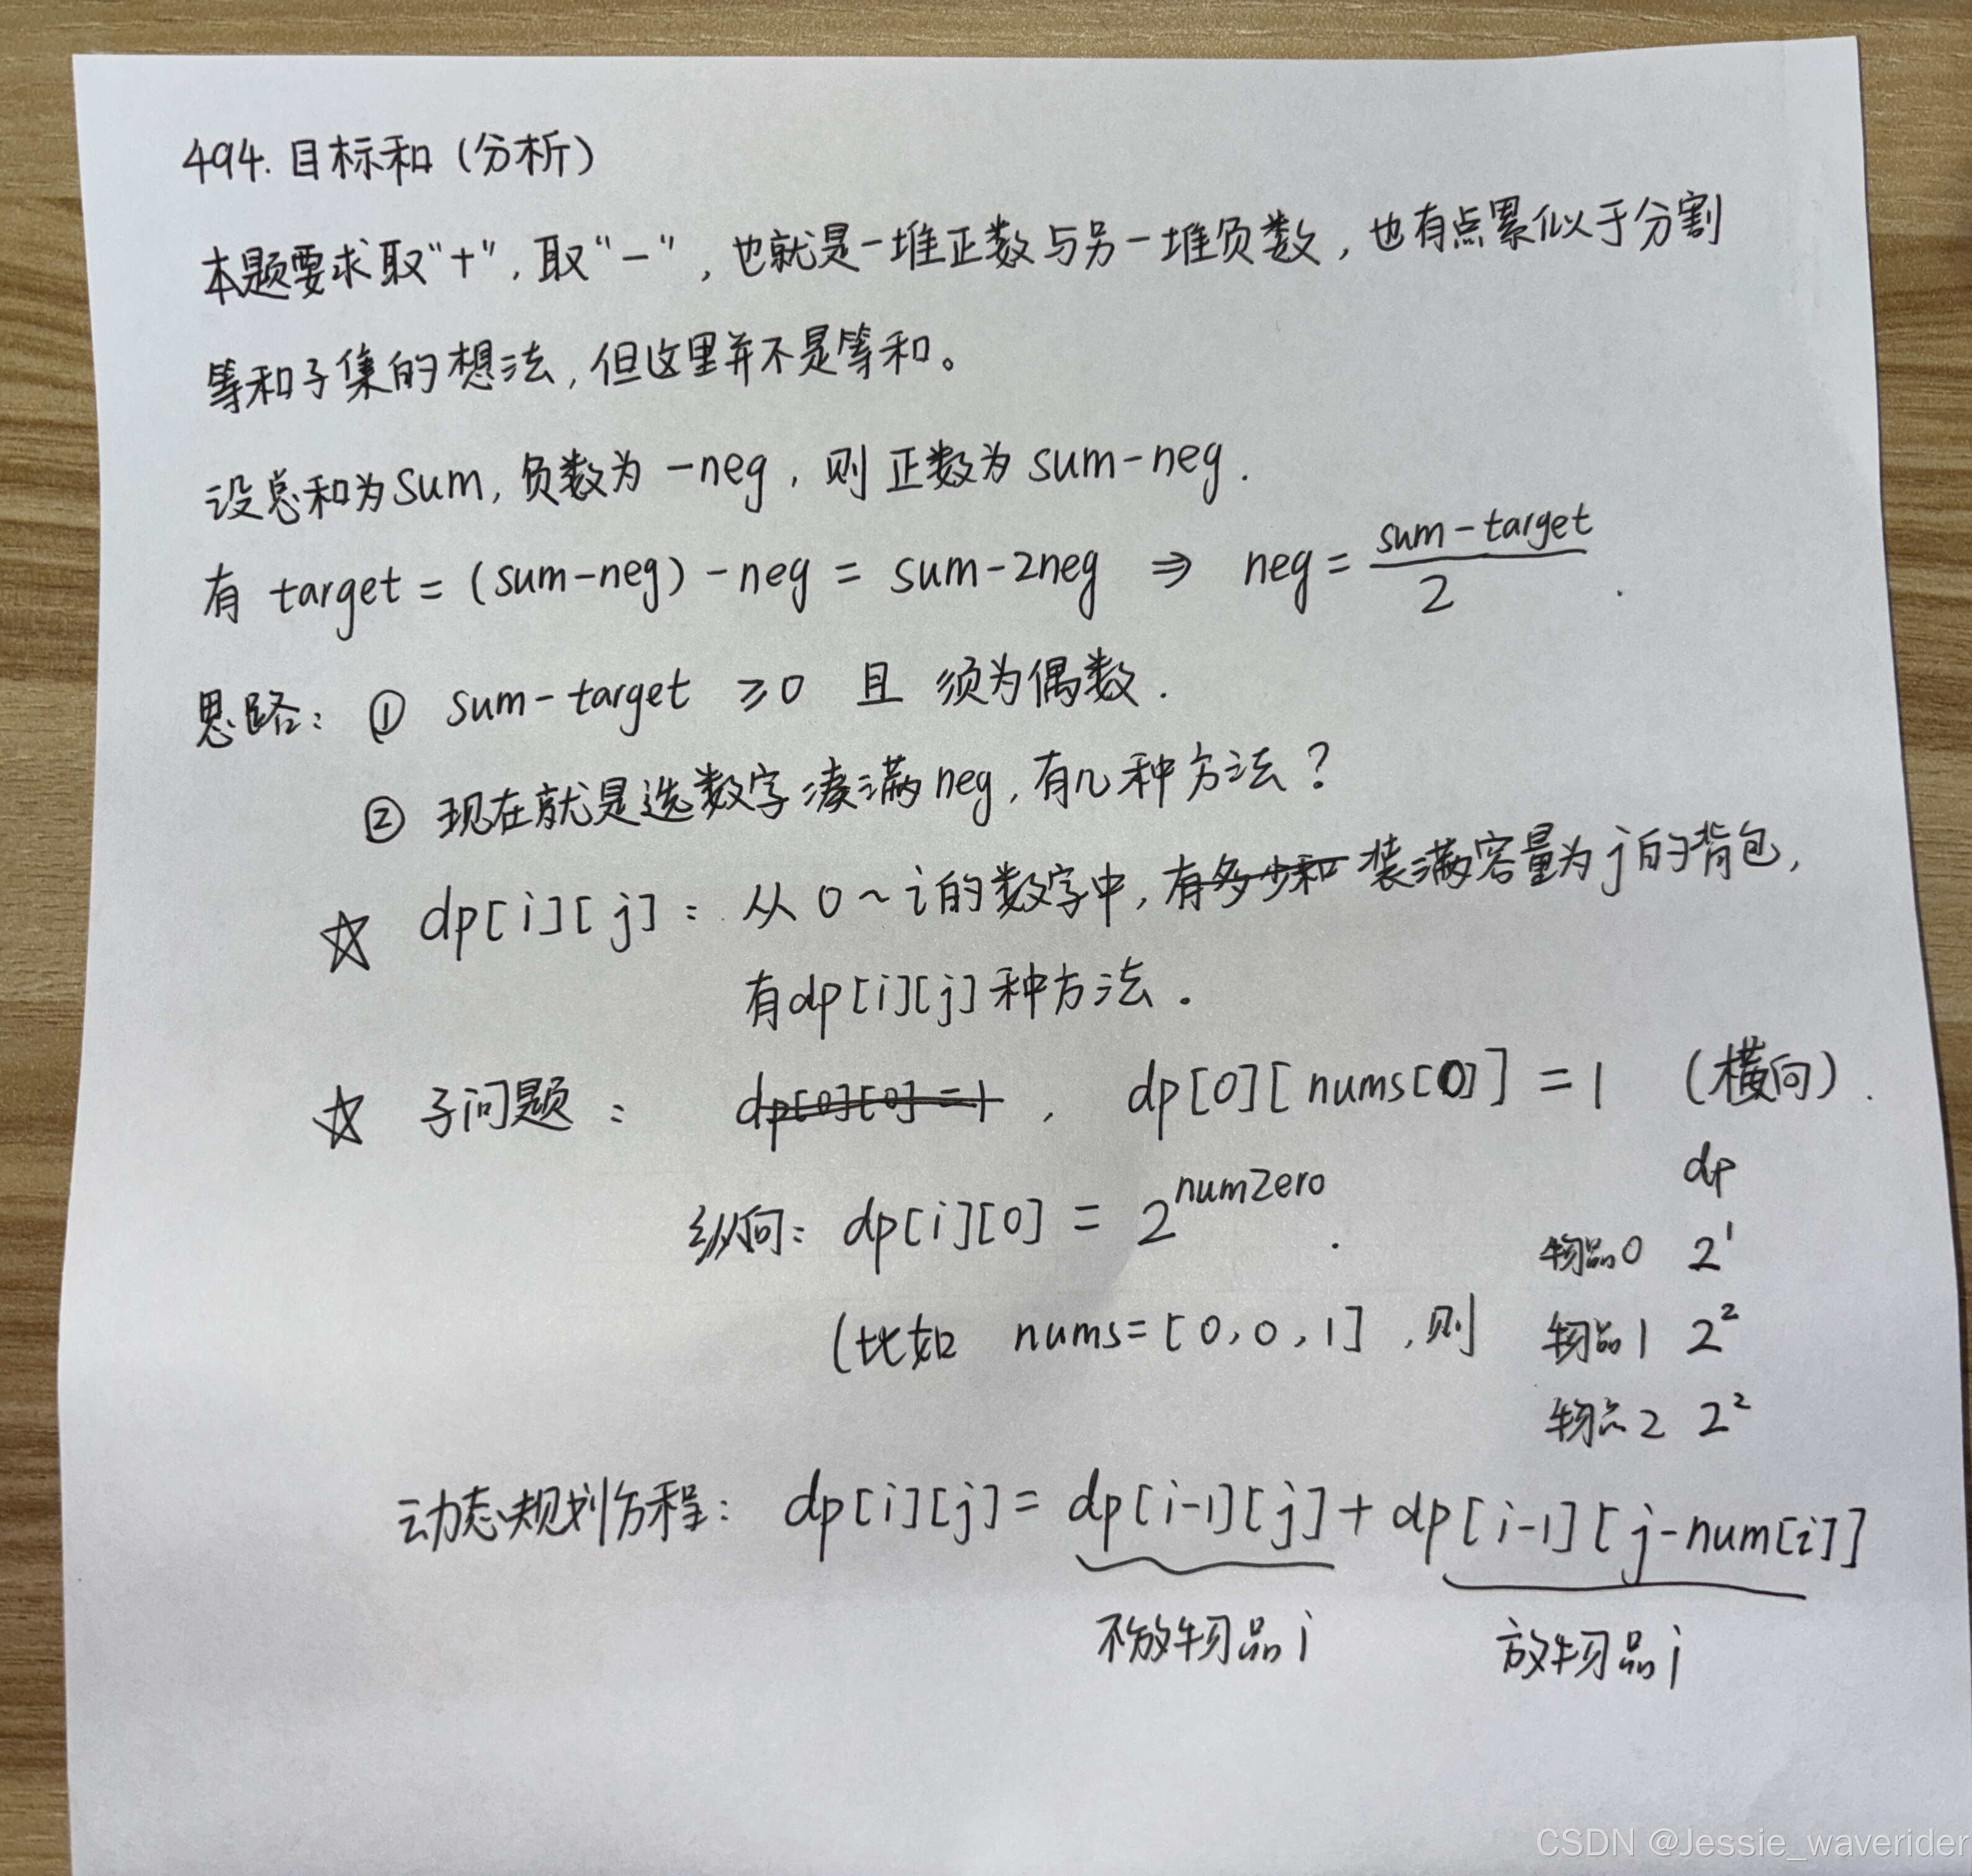 494. 目标和 (分析)
本题要求取“+”, 取“-”, 也就是一堆正数与另一堆负数, 也有点累似于分割
等和子集的想法, 但这里并不是等和。
设总和为sum, 负数为 -neg, 则正数为 sum-neg.
有 target = (sum-neg) - neg = sum-2neg ⇒ neg = \frac{sum-target}{2} .
思路: ① sum-target ≥0 且 须为偶数.
② 现在就是选数字凑满neg, 有几种方法?
☆ dp[i][j]: 从 0~i的数字中, 有多少和 装满容量为j的背包,
有dp[i][j]种方法.
☆ 子问题: dp[0][0]=1 , dp[0][nums[0]] = 1 (横向).
dp
纵向: dp[i][0] = 2^{numZero} .
物品0 2^1
(比如 nums=[0,0,1], 则 物品1 2^2
物品2 2^2
动态规划方程: dp[i][j] = dp[i-1][j] + dp[i-1][j-num[i]]
不放物品i 放物品i
CSDN @Jessie_waverider